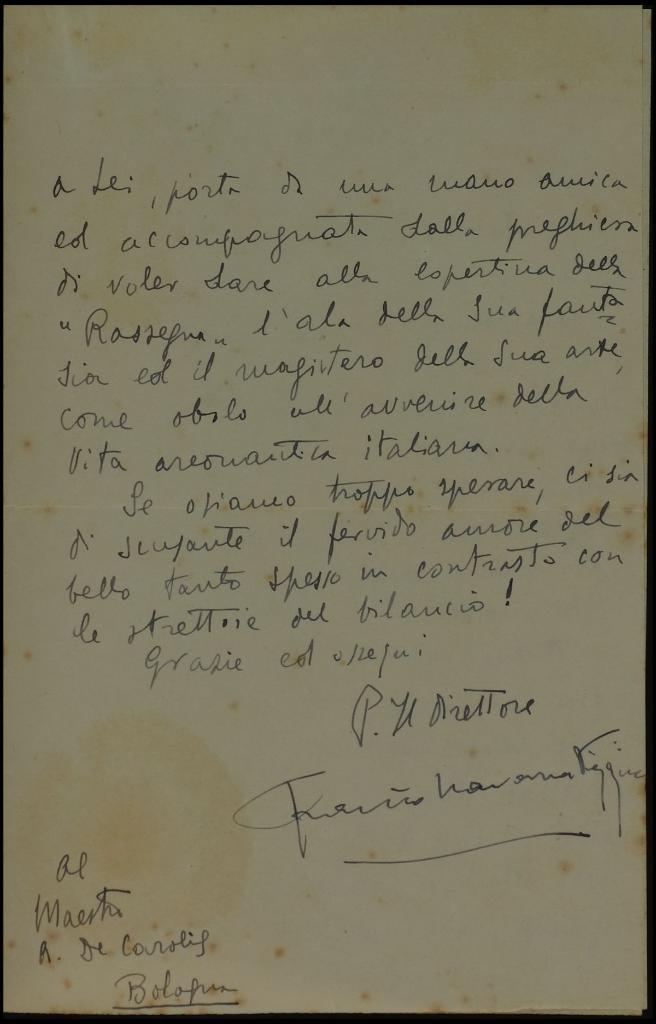 a Lei, porta da una mano amica
ed accompagnata dalla preghiera
di voler dare alla copertina della
"Rassegna" l'ala della Sua fanta=
sia ed il magistero della Sua arte,
come obolo all'avvenire della
Vita areonautica italiana.
Se osiamo troppo sperare, ci sia
di scusante il fervido amore del
bello tanto spesso in contrasto con
le strettoie del bilancio!
Grazie ed ossequi
P. Il Direttore
Al
Maestro
A. De Carolis
Bologna